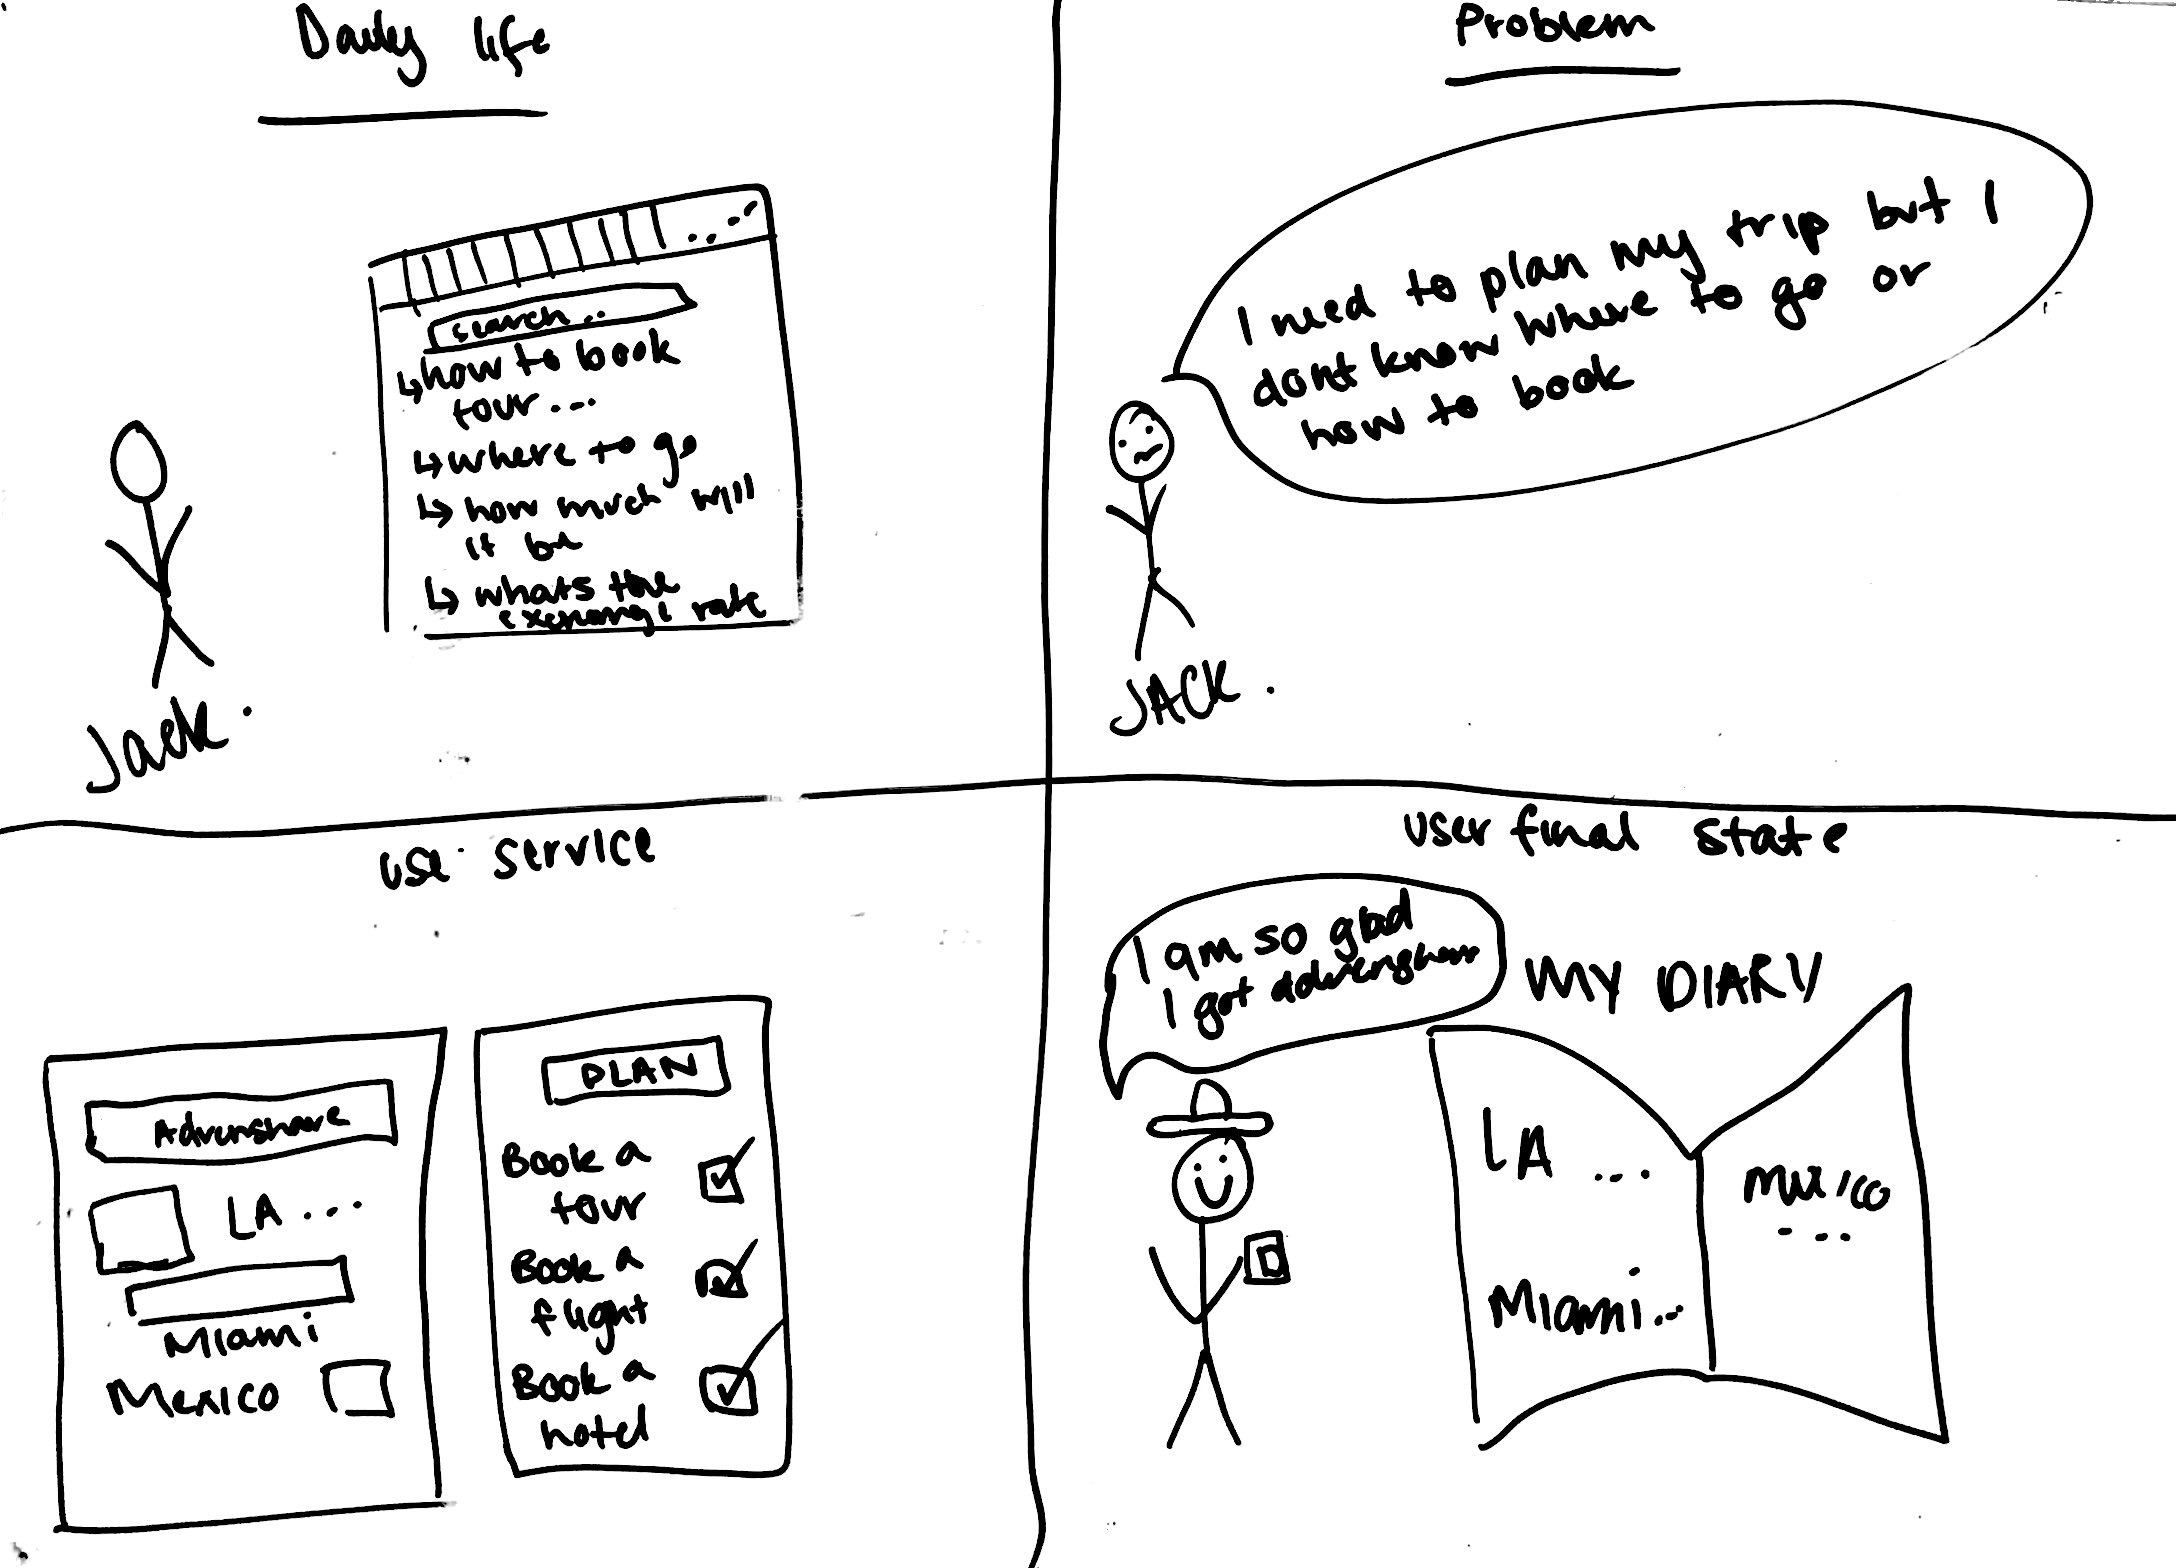 Daily life
search..
↳how to book
tour...
↳where to go
↳ how much will
it be
↳ whats the
exchange rate
Jack.
Problem
I need to plan my trip but I
dont know where to go or
how to book
JACK.
use service
Advenshare
LA...
Miami
Mexico
PLAN
Book a
tour
Book a
flight
Book a
hotel
user final state
I am so glad
I got advenshare
MY DIARY
LA ...
Miami...
mexico
...